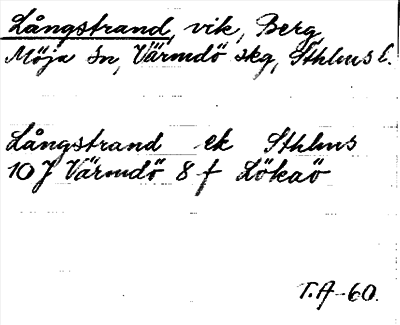 Långstrand, vik, Berg,
Möja sn, Värmdö skg, Sthlms l.
Långstrand ek Sthlms
10 J Värmdö 8 f Lökaö
T.A-60.